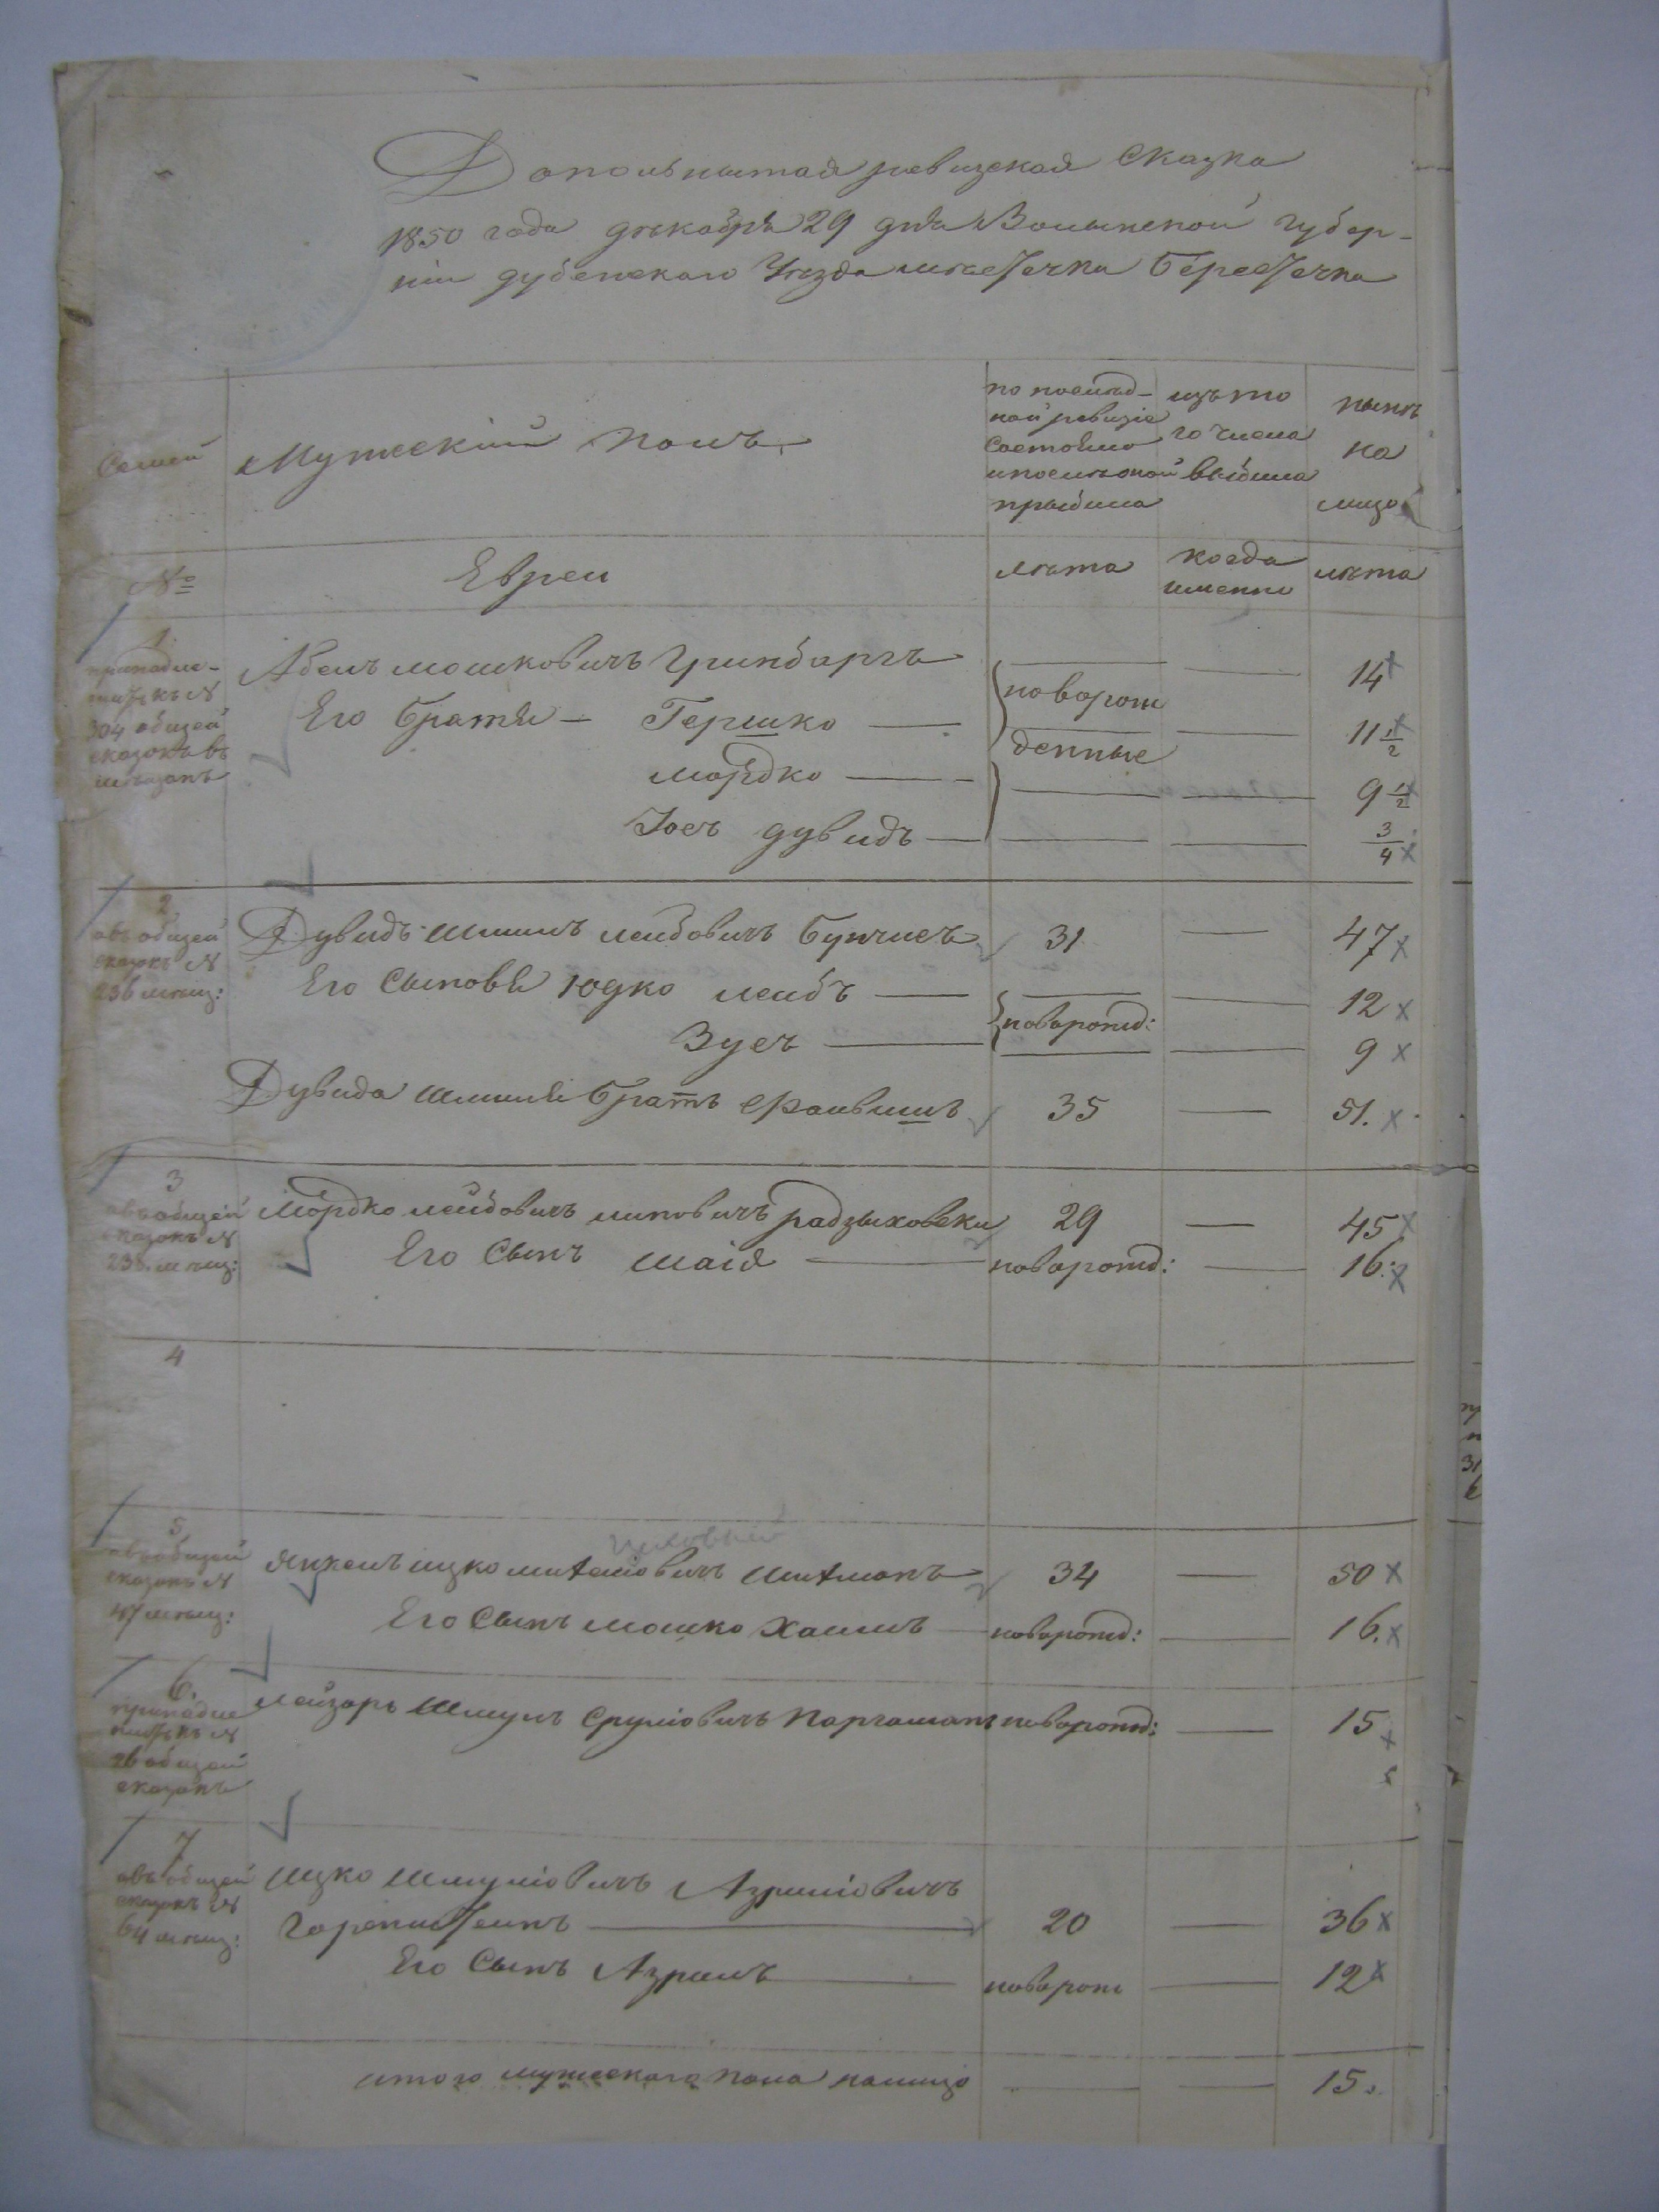 Дополнытая ревизская Сказка
1850 года декабря 29 дня Волынской губер-
ніи дубенского Уезда местечка Берестечка
Семей
Мужескій полъ
по послед-
ной ревизіе
состояло
и после оной
прыбыла
изъ то
го числа
выбыла
ныне
на
лицо
№
Евреи
лета
когда
именно
лета
1
принадле-
жит къ №
304 общей
сказокъ въ
Абель мошковичъ Гринбаргъ
новорож
14
Его братья — Гершко
денные
11 1/2
мордко
9 1/2
Іось дувидъ
3/4
2
въ общей
сказкъ №
236 мещ:
Дувидъ шлиомъ лейбовичъ Бунчисъ
31
47
Его Сыновья юдко лейбъ
новорожд:
12
Зусь
9
Дувида шлиомы братъ Файвишъ
35
51.
3
въ общей
сказокъ №
238 мещ:
Мордко лейбовичъ липовичъ радзыховски
29
45
Его Сынъ шаія
новорожд:
16.
4
5
въ общей
сказокъ №
47 мещ:
Янкель ицко
34
50
Его Сынъ мошко Хаимъ
новорожд:
16.
6.
принадле
жит къ №
26 общей
сказокъ
Лейзоръ Шмуль Сруліовичъ Паргаманъ
новорожд:
15
7
въ общей
сказокъ №
64 мещ:
Ицко Шмуліовичъ Азриліовичъ
Горенштейнъ
20
36
Его Сынъ Азриль
новорож
12
итого мужескаго пола налицо
15.